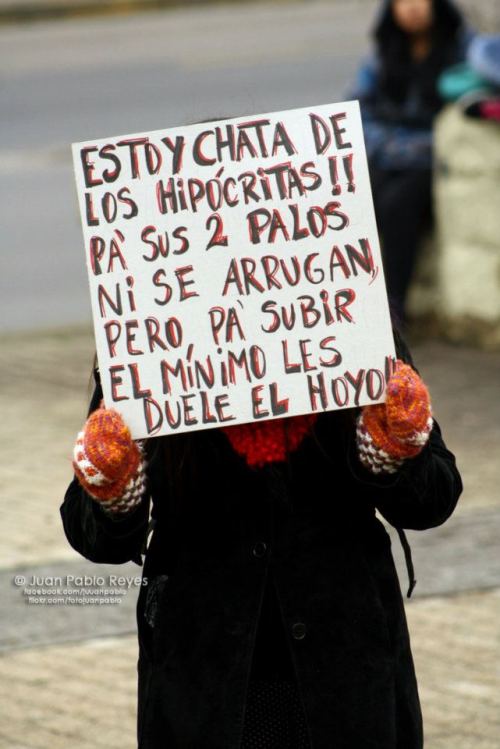 ESTOY CHATA DE
LOS HIPÓCRITAS!!
PA' SUS 2 PALOS
NI SE ARRUGAN,
PERO PA' SUBIR
EL MÍNIMO LES
DUELE EL HOYO!!
© Juan Pablo Reyes
facebook.com/juuanpablo
flickr.com/fotojuanpablo